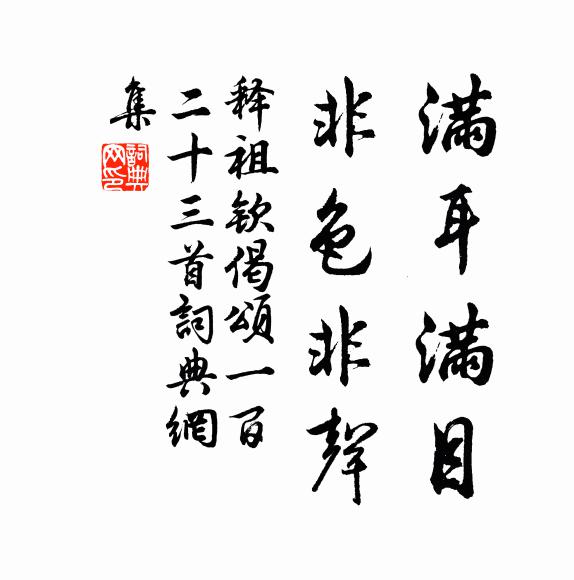 满耳满目
非色非聲
释祖钦偈頌一百
二十三首詞典網
集
詞典
网印